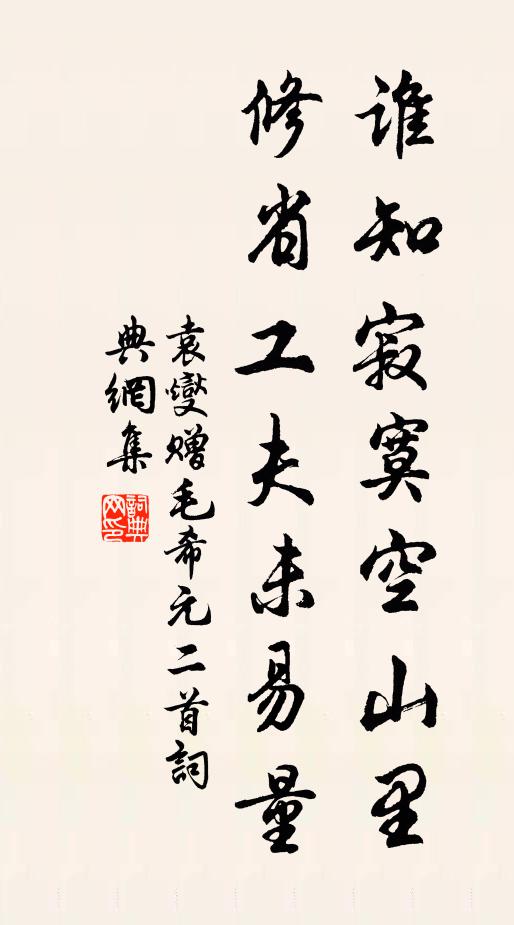 誰知寂寞空山里
修省工夫未易量
袁燮贈毛希元二首詞
典網集
詞典網印